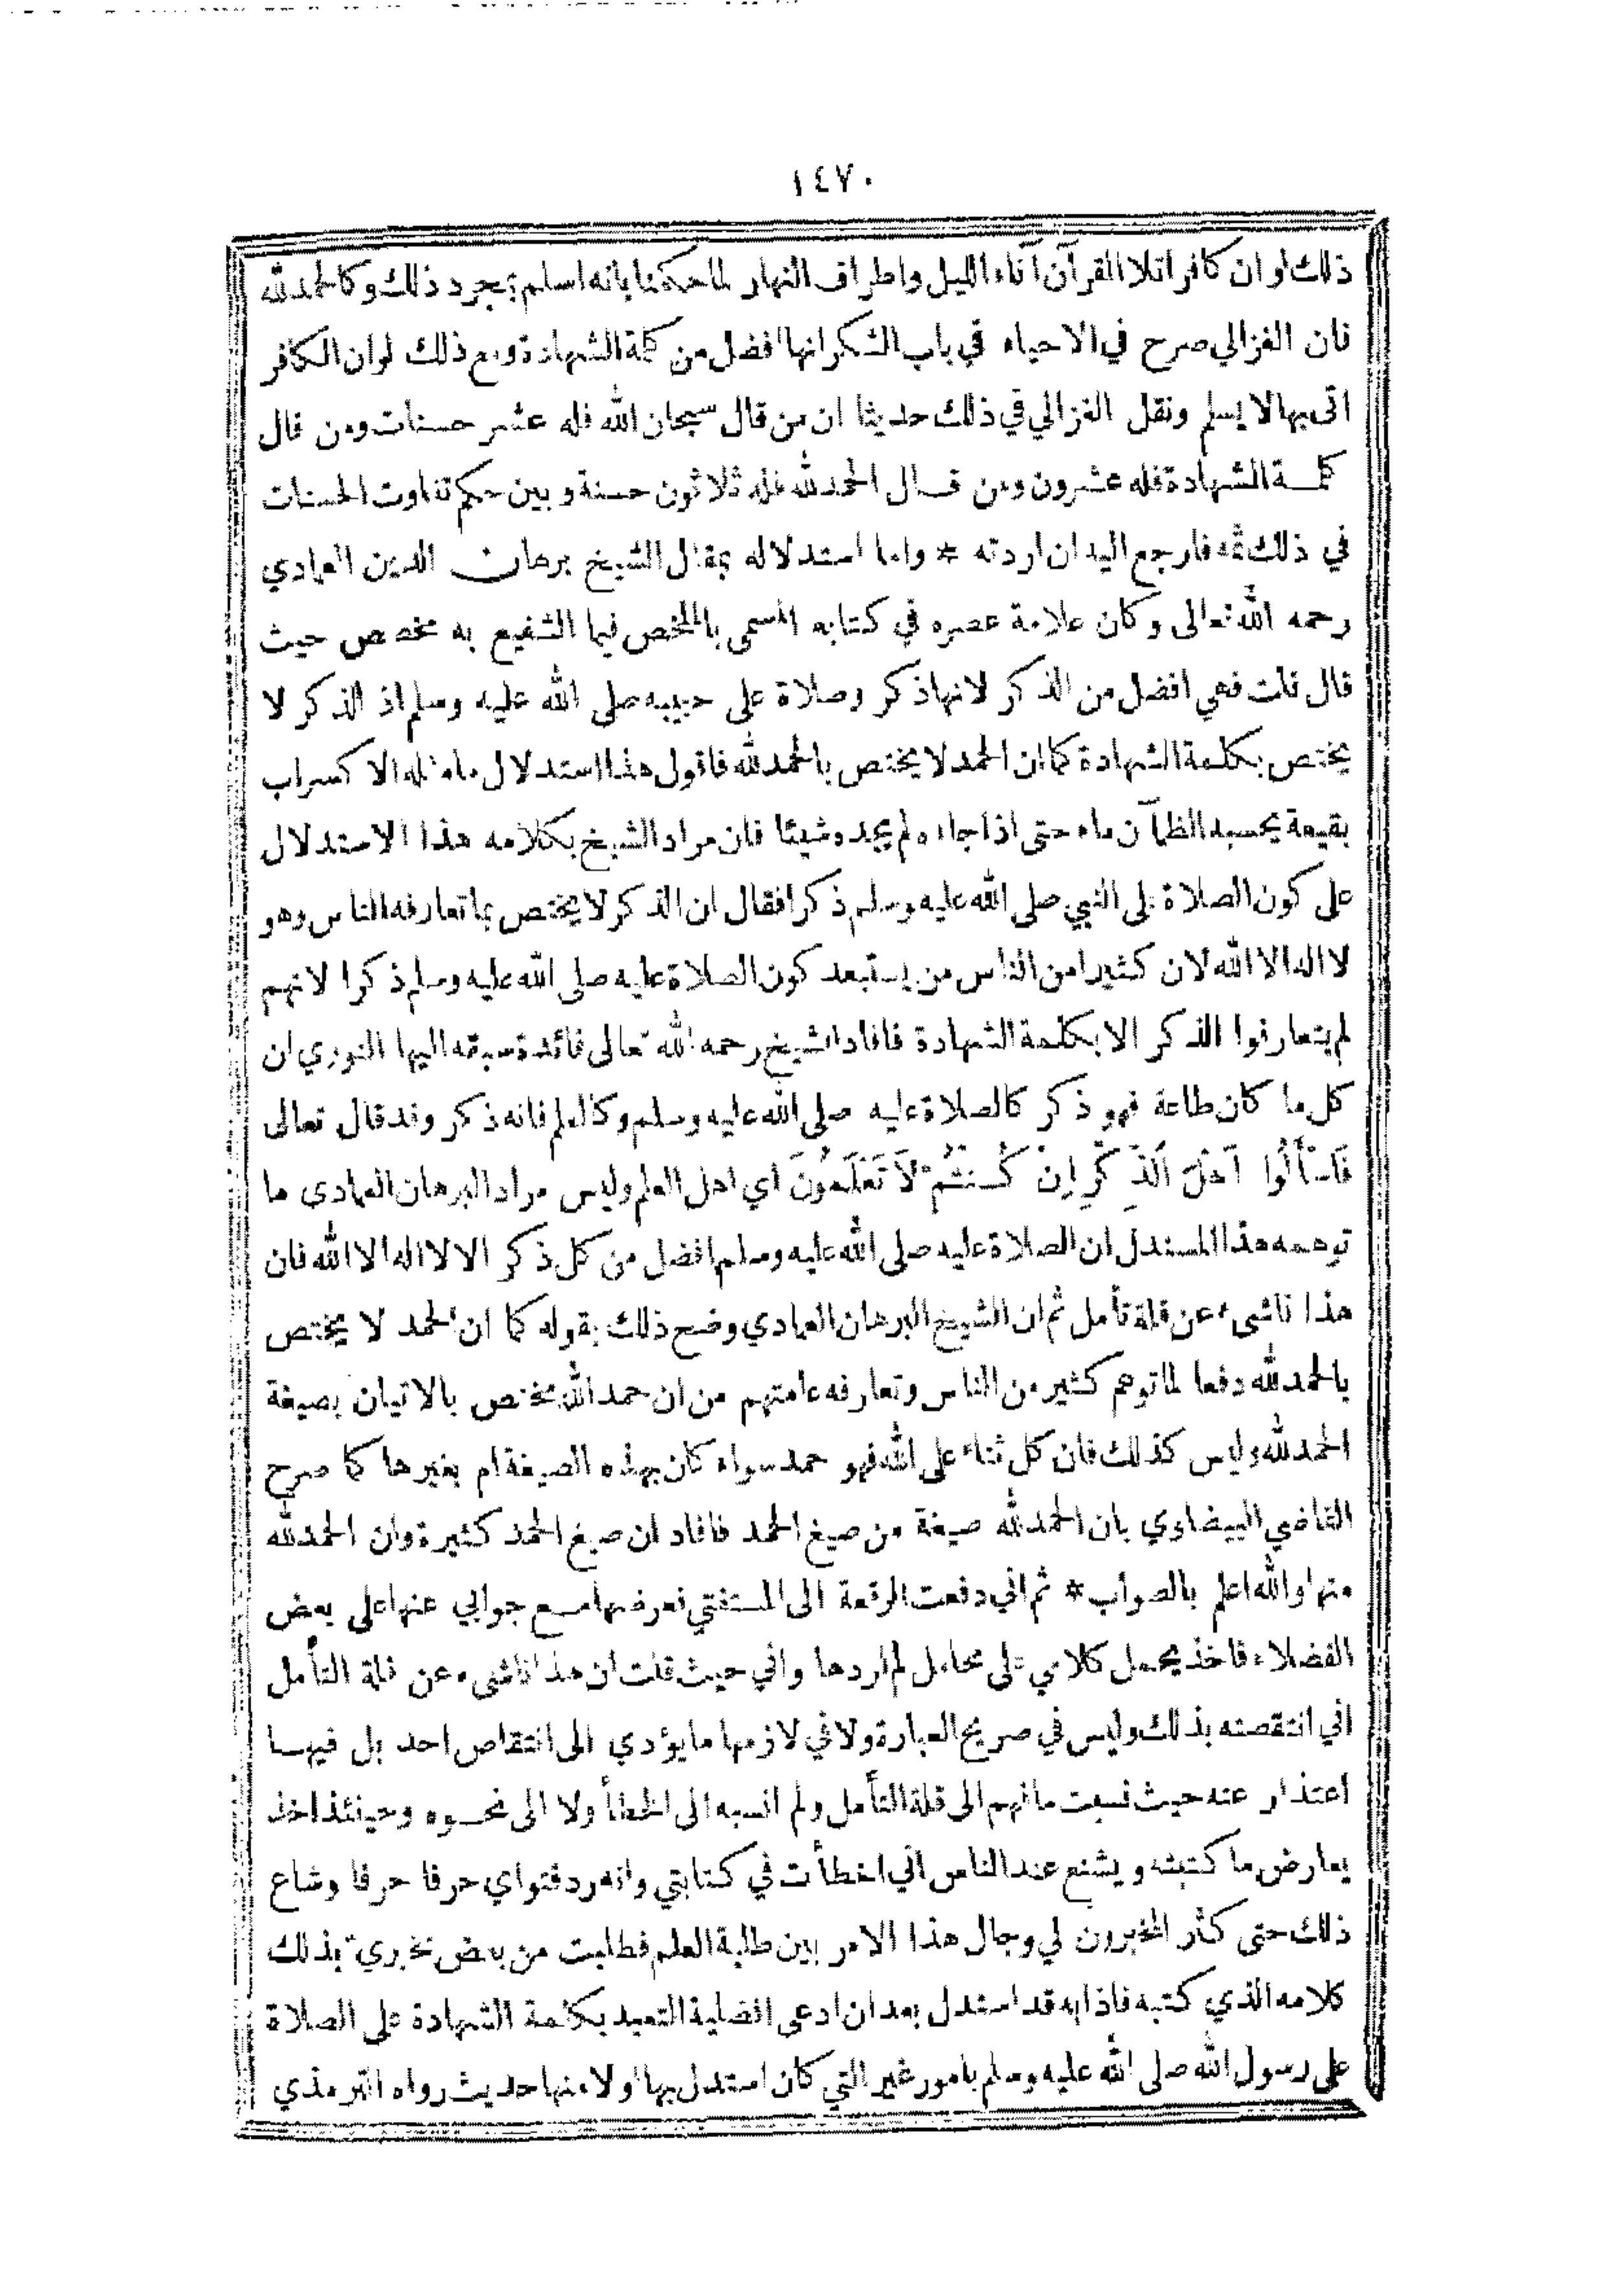 ١٤٧٠
ذلك لو ان كافرا تلا القرآن آناء الليل واطراف النهار لما حكمنا بانه اسلم بمجرد ذلك وكالحمد لله
فان الغزالي صرح في الاحياء في باب الشكر انها افضل من كلمة الشهادة ومع ذلك لو ان الكافر
اتى بها لا يسلم ونقل الغزالي في ذلك حديثا ان من قال سبحان الله فله عشر حسنات ومن قال
كلمة الشهادة فله عشرون ومن قال الحمد لله فله ثلاثون حسنة وبين حكم تفاوت الحسنات
في ذلك ثمه فارجع اليه ان اردته * واما استدلاله بمقال الشيخ برهان الدين العمادي
رحمه الله تعالى وكان علامة عصره في كتابه المسمى بالملخص فيما الشفيع به مخصص حيث
قال قلت فهي افضل من الذكر لانها ذكر وصلاة على حبيبه صلى الله عليه وسلم اذ الذكر لا
يختص بكلمة الشهادة كما ان الحمد لا يختص بالحمد لله فاقول هذا استدلال ما مثله الا كسراب
بقيعة يحسبه الظمآن ماء حتى اذا جاءه لم يجده شيئا فان مراد الشيخ بكلامه هذا الاستدلال
على كون الصلاة على النبي صلى الله عليه وسلم ذكرا فقال ان الذكر لا يختص بما تعارفه الناس وهو
لا اله الا الله لان كثيرا من الناس من يستبعد كون الصلاة عليه صلى الله عليه وسلم ذكرا لانهم
لم يتعارفوا الذكر الا بكلمة الشهادة فافاد الشيخ رحمه الله تعالى فائدة سبقه اليها النووي ان
كل ما كان طاعة فهو ذكر كالصلاة عليه صلى الله عليه وسلم وكالعلم فانه ذكر وقد قال تعالى
فَاسْأَلُوا أَهْلَ الذِّكْرِ إِنْ كُنْتُمْ لَا تَعْلَمُونَ اي اهل العلم وليس مراد البرهان العمادى ما
توهمه هذا المستدل ان الصلاة عليه صلى الله عليه وسلم افضل من كل ذكر الا لا اله الا الله فان
هذا ناشىء عن قلة تأمل ثم ان الشيخ البرهان العمادي وضح ذلك بقوله كما ان الحمد لا يختص
بالحمد لله دفعا لما توهم كثير من الناس وتعارفه عامتهم من ان حمد الله مختص بالاتيان بصيغة
الحمد لله وليس كذلك فان كل ثناء على الله فهو حمد سواء كان بهذه الصيغة ام بغيرها كما صرح
القاضي البيضاوي بان الحمد لله صيغة من صيغ الحمد فافاد ان صيغ الحمد كثيرة وان الحمد لله
منها والله اعلم بالصواب * ثم اني دفعت الرقعة الى المستفتي فعرضها مع جوابي عنها على بعض
الفضلاء فاخذ يحمل كلامي على محامل لم اردها واني حيث قلت ان هذا ناشىء عن قلة التأمل
اني انتقصته بذلك وليس في صريح العبارة ولا في لازمها ما يؤدي الى انتقاص احد بل فيها
اعتذار عنه حيث نسبت ما فهم الى قلة التأمل ولم انسبه الى الخطأ ولا الى نحوه وحينئذ اخذ
يعارض ما كتبته ويشنع عند الناس اني اخطأت في كتابتي وانه رد فتواي حرفا حرفا وشاع
ذلك حتى كثر المخبرون لي وجال هذا الامر بين طلبة العلم فطلبت من بعض مخبري بذلك
كلامه الذي كتبه فاذا به قد استدل بعد ان ادعى افضلية التعبد بكلمة الشهادة على الصلاة
على رسول الله صلى الله عليه وسلم بامور غير التي كان استدل بها اولا منها حديث رواه الترمذي